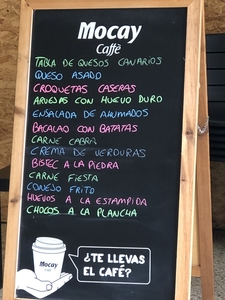 Mocay
Caffè
TABLA DE QUESOS CANARIOS
QUESO ASADO
CROQUETAS CASERAS
ARVEJAS CON HUEVO DURO
ENSALADA DE AHUMADOS
BACALAO CON BATATAS
CARNE CABRA
CREMA DE VERDURAS
BISTEC A LA PIEDRA
CARNE FIESTA
CONEJO FRITO
HUEVOS A LA ESTAMPIDA
CHOCOS A LA PLANCHA
Mocay
¿TE LLEVAS
EL CAFÉ?